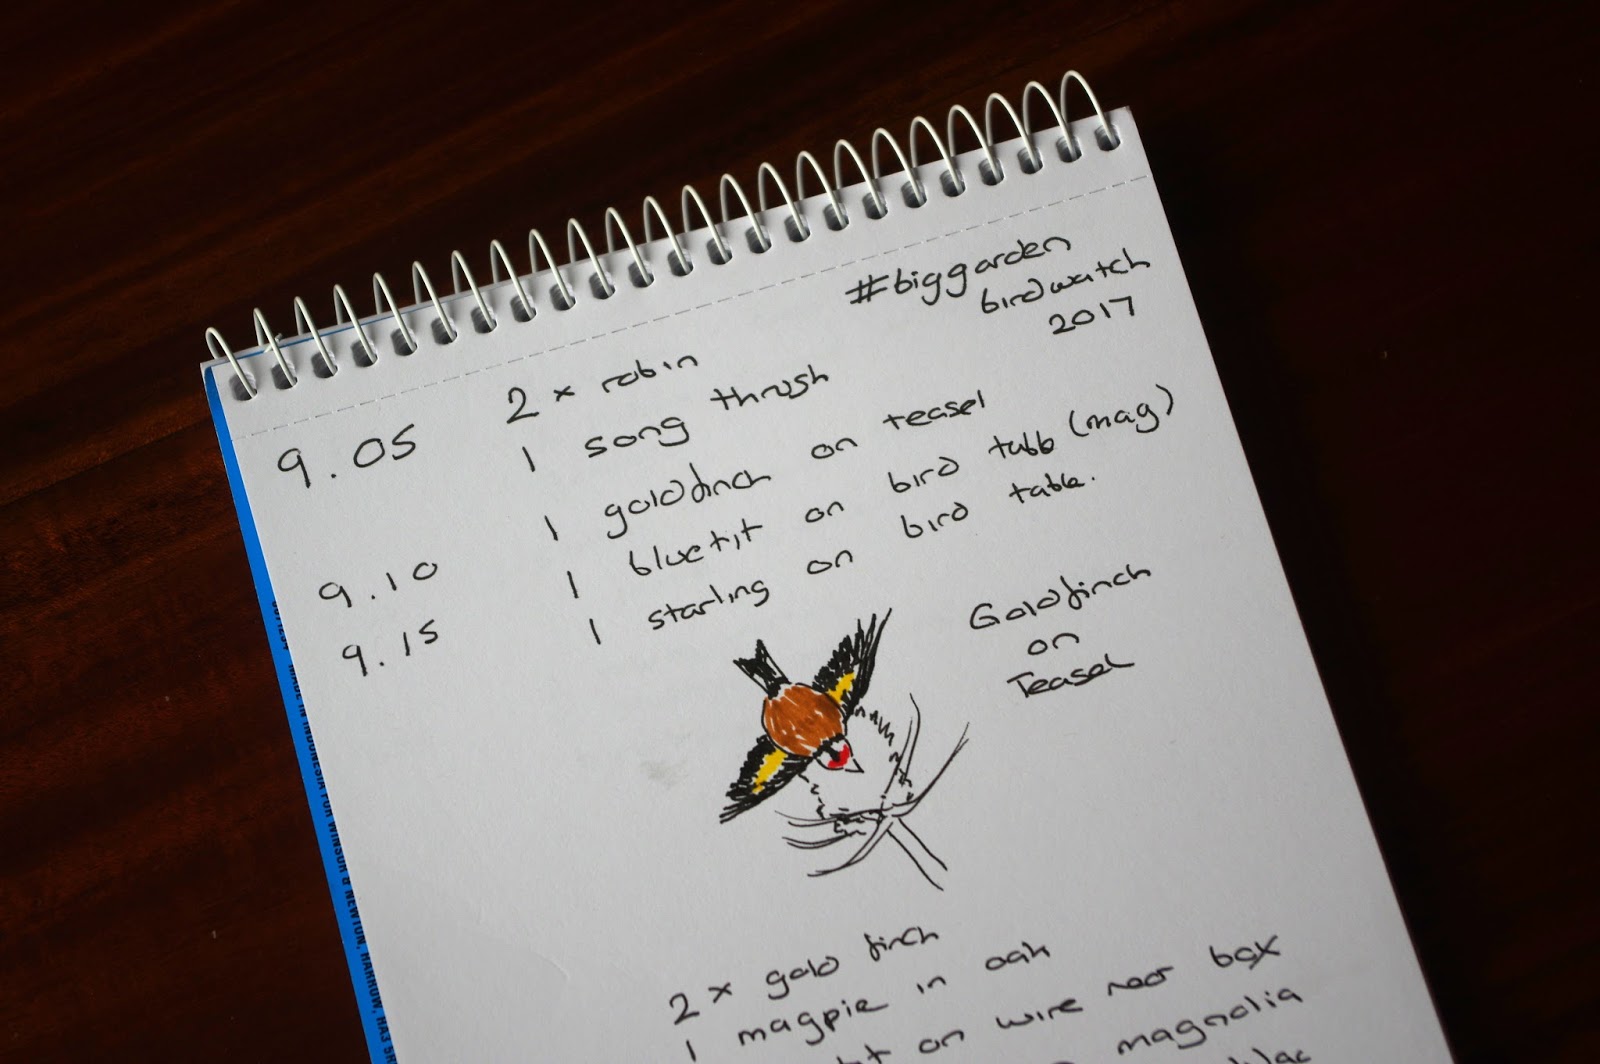 #biggarden
birdwatch
2017
9.05 2 x robin
1 song thrush
1 goldfinch on teasel
9.10 1 bluetit on bird table (mag)
9.15 1 starling on bird table.
Goldfinch
on
Teasel
2 x gold finch
1 magpie in oak
on wire near box
magnolia
lilac
MADE IN INDONESIA FOR WINSOR & NEWTON, HARROW, HA3 5R